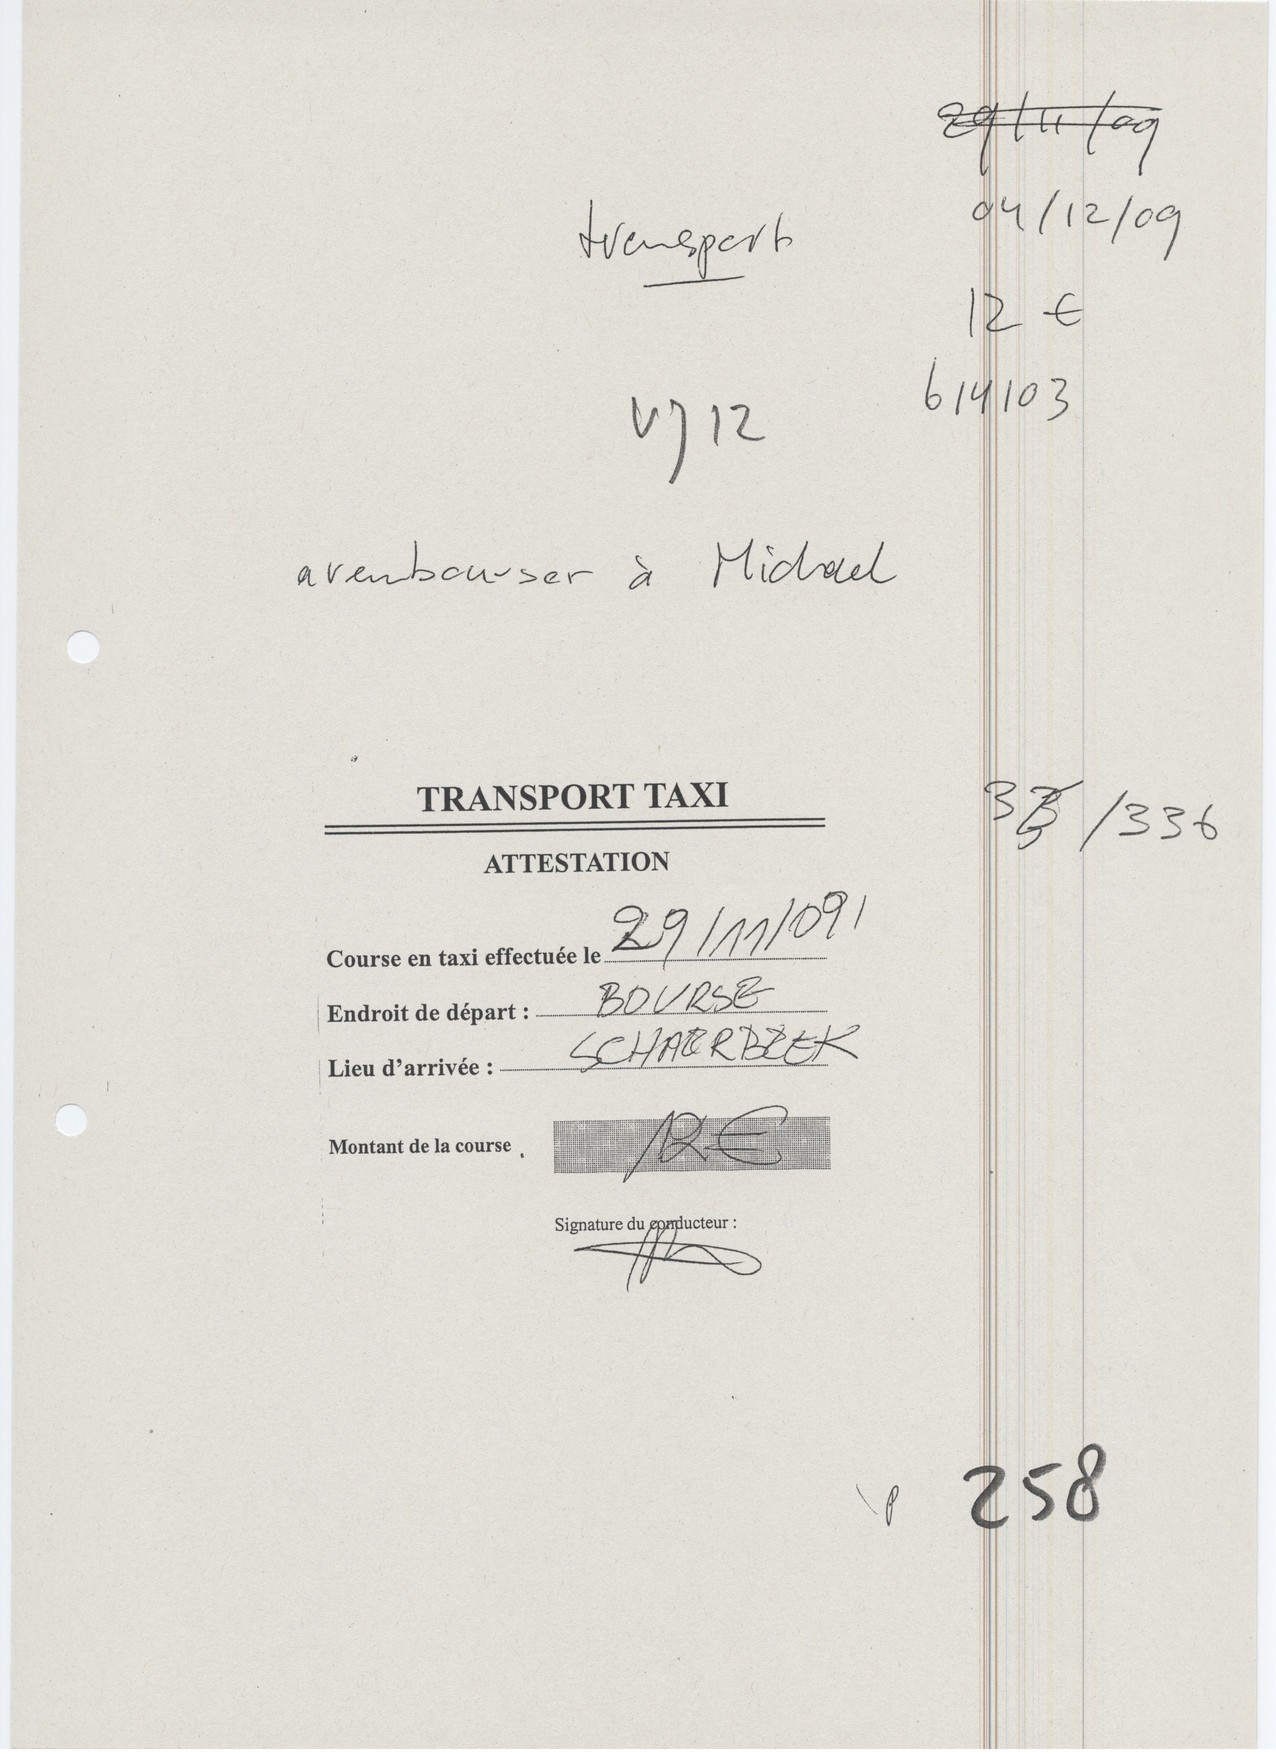 29/11/09
04/12/09
transport
12 €
614103
VJ 12
a rembourser à Michael
TRANSPORT TAXI
/336
ATTESTATION
Course en taxi effectuée le 29/11/09/
Endroit de départ : BOURSE
Lieu d'arrivée : SCHAERBEEK
Montant de la course 12 €
Signature du conducteur :
258